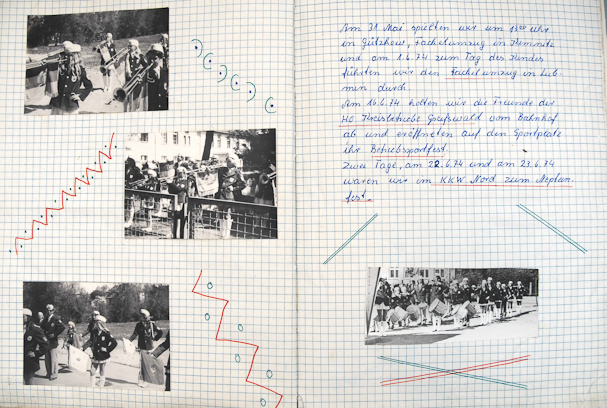 Am 31 Mai spielten wir um 13⁰⁰ Uhr
in Gützkow, Fackelumzug in Kemnitz
und am 1.6.74 zum Tag des Kindes
führten wir den Fackelumzug in Lub-
min durch.
Am 16.6.74 holten wir die Freunde der
HO Kreisbetriebe Greifswald vom Bahnhof
ab und eröffneten auf den Sportplatz
ihr Betriebssportfest.
Zwei Tage, am 22.6.74 und am 23.6.74
waren wir im KKW Nord zum Neptun-
fest.